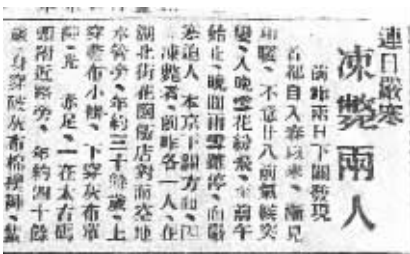 連日嚴寒
凍斃兩人
前昨兩日下關發現
首都自入春以來、漸見
和暖、不意廿八前氣候突
變、入晚雪花紛飛、至前午
始止、晚間雨雪雖停、而嚴
寒迫人、本京下關方面、
凍斃者、前昨各一人、在
湖北街花園飯店對面空地
水管旁、年約三十餘歲、上
穿藍布小褂、下穿灰布單
褲、光 赤足、一在太古碼
頭附近路旁、年約四十餘
歲、身穿破灰布棉襖褲、藍